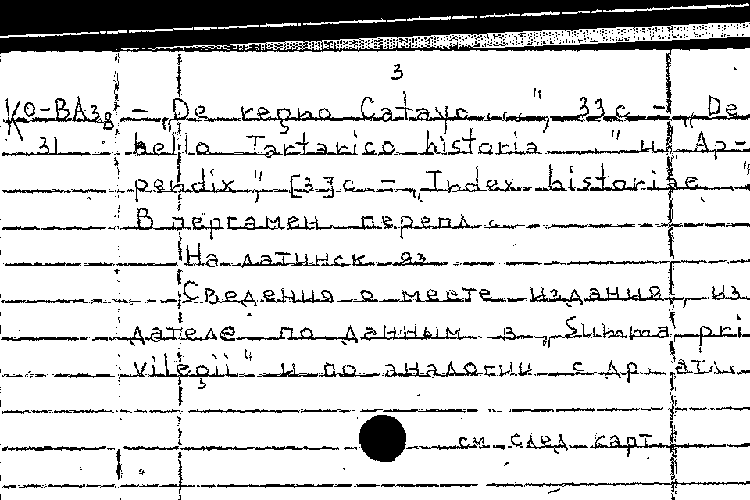 3
КО-ВАз8 – „De regno Catayo...", 33 с – „De
31 bello Tartarico historia "и Ap-
pendix", [3]с – „Index historiae "
В пергамен. перепл.
На латинск. яз.
Сведения о месте издания, из
дателе по данным в „Summa pri
vilegii" и по аналогии с др. атл.
см. след. карт.